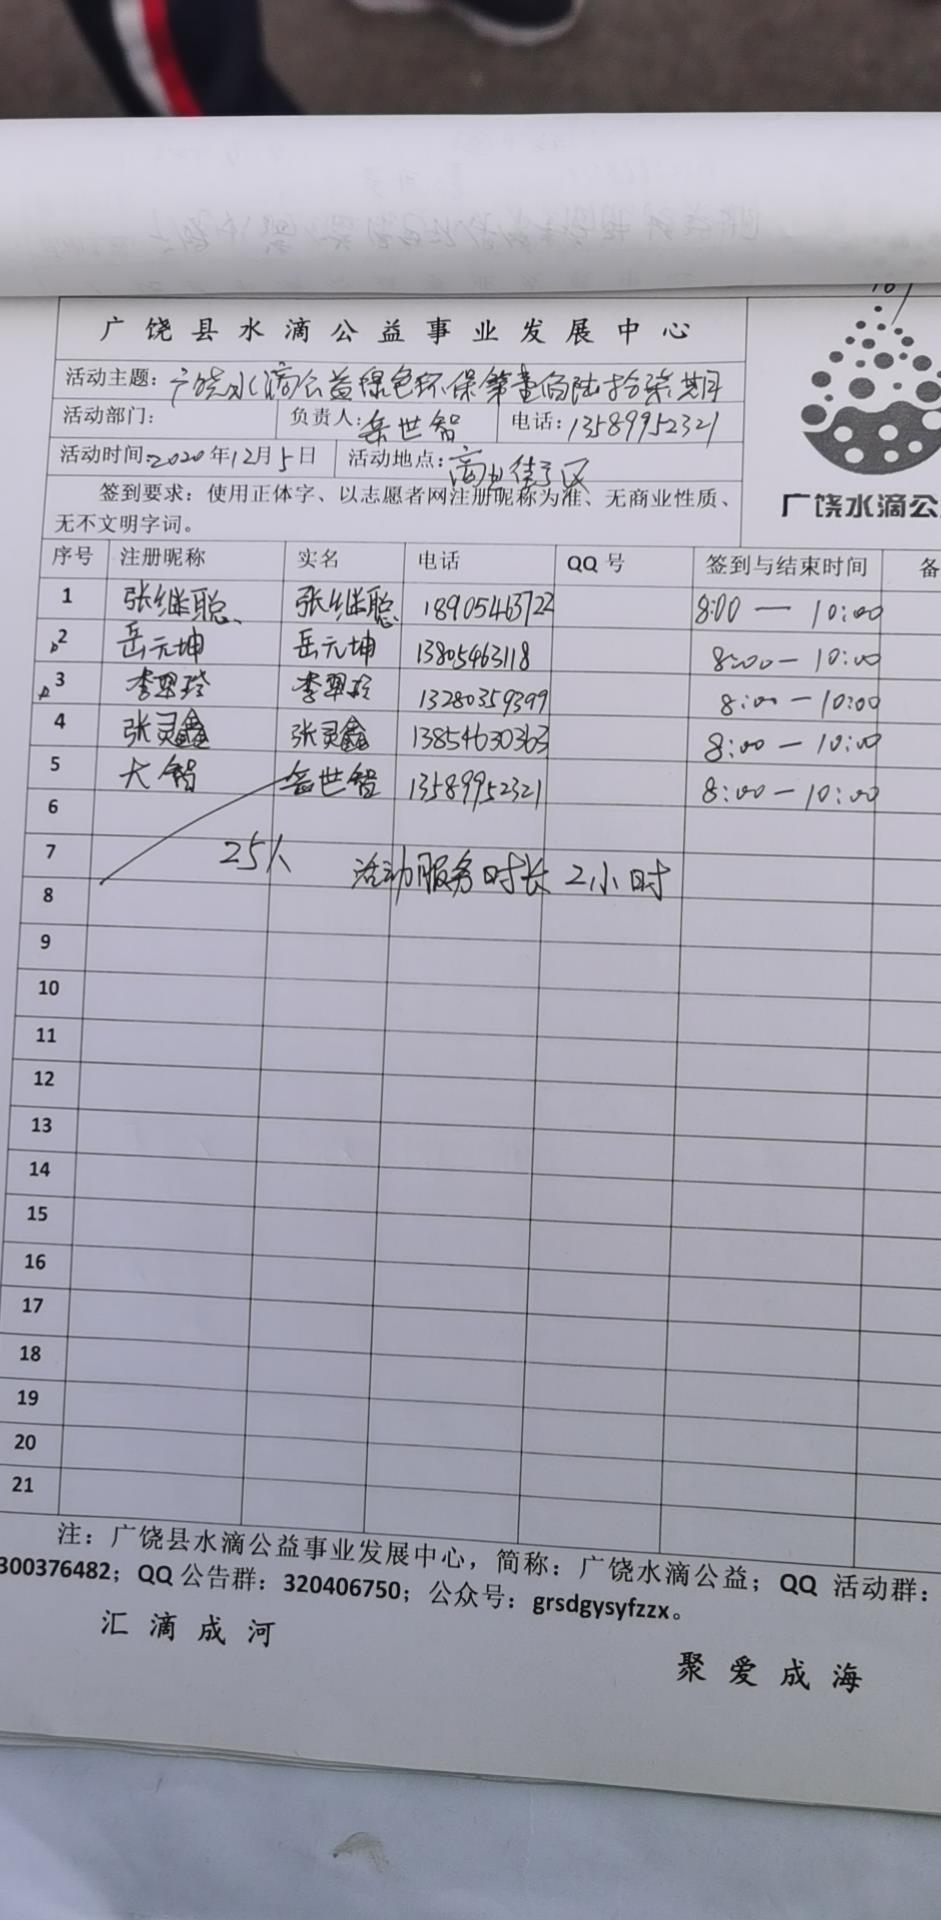 广饶县水滴公益事业发展中心
活动主题：广饶水滴公益绿色环保第壹佰陆拾柒期
活动部门： 负责人：岳世智 电话：13589952321
活动时间：2020年12月5日 活动地点：商业街区
签到要求：使用正体字、以志愿者网注册昵称为准、无商业性质、
无不文明字词。
广饶水滴公
序号 注册昵称 实名 电话 QQ号 签到与结束时间 备
1 张继聪 张继聪 18905463722 8:00—10:00
2 岳元坤 岳元坤 13805463118 8:00—10:00
3 李翠玲 李翠玲 13280359399 8:00—10:00
4 张灵鑫 张灵鑫 13854630363 8:00—10:00
5 大智 岳世智 13589952321 8:00—10:00
6
7 25人 活动服务时长2小时
8
9
10
11
12
13
14
15
16
17
18
19
20
21
注：广饶县水滴公益事业发展中心，简称：广饶水滴公益；QQ 活动群：
300376482；QQ公告群：320406750；公众号：grsdgysyfzzx。
汇滴成河
聚爱成海